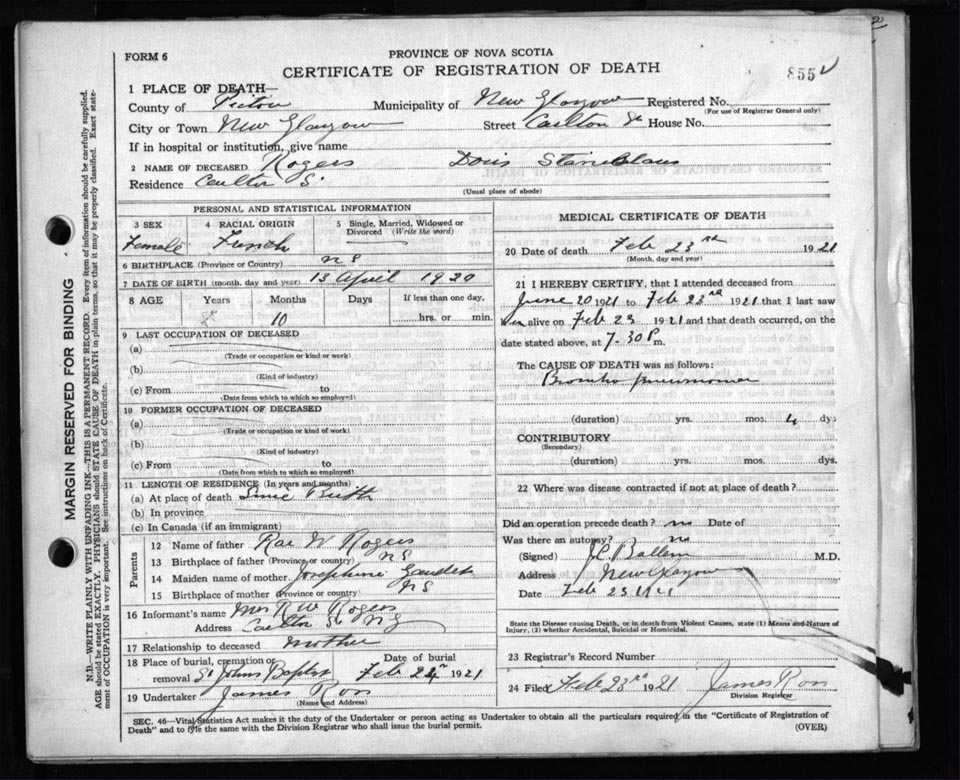 FORM 6
PROVINCE OF NOVA SCOTIA
CERTIFICATE OF REGISTRATION OF DEATH
855
1 PLACE OF DEATH—
County of Pictou Municipality of New Glasgow Registered No.
(For use of Registrar General only)
City or Town New Glasgow Street Carlton St House No.
If in hospital or institution, give name
2 NAME OF DECEASED Rogers Doris Stanislaus
Residence Carlton St
(Usual place of abode)
PERSONAL AND STATISTICAL INFORMATION
3 SEX 4 RACIAL ORIGIN 5 Single, Married, Widowed or Divorced (Write the word)
Female French
6 BIRTHPLACE (Province or Country) N S
7 DATE OF BIRTH (month, day and year) 13 April 1920
8 AGE Years Months Days If less than one day,
10 hrs. or min.
9 LAST OCCUPATION OF DECEASED
(a)
(Trade or occupation or kind or work)
(b)
(Kind of industry)
(c) From to
(Date from which to which so employed)
10 FORMER OCCUPATION OF DECEASED
(a)
(Trade or occupation or kind of work)
(b)
(Kind of industry)
(c) From to
(Date from which to which so employed)
11 LENGTH OF RESIDENCE (In years and months)
(a) At place of death Since Birth
(b) In province
(c) In Canada (if an immigrant)
Parents
12 Name of father Rae W Rogers
13 Birthplace of father (Province or country) N S
14 Maiden name of mother Josephine Gaudet
15 Birthplace of mother (Province or country) N S
16 Informant's name Mrs R W Rogers
Address Carlton St N G
17 Relationship to deceased Mother
18 Place of burial, cremation or removal St Johns Baptist Date of burial Feb 24 1921
19 Undertaker James Ross
(Name and Address)
MEDICAL CERTIFICATE OF DEATH
20 Date of death Feb 23rd 1921
(Month, day and year)
21 I HEREBY CERTIFY, that I attended deceased from
June 20 1921 to Feb 23rd 1921 that I last saw
her alive on Feb 23 1921 and that death occurred, on the
date stated above, at 7-30 P m.
The CAUSE OF DEATH was as follows:
Broncho pneumonia
(duration) yrs. mos. 4 dys
CONTRIBUTORY
(Secondary)
(duration) yrs. mos. dys.
22 Where was disease contracted if not at place of death?
Did an operation precede death? no Date of
Was there an autopsy? no
(Signed) J C Ballem M.D.
Address New Glasgow
Date Feb 23 1921
State the Disease causing Death, or in death from Violent Causes, state (1) Means and Nature of
Injury, (2) whether Accidental, Suicidal or Homicidal.
23 Registrar's Record Number
24 Filed Feb 23rd 1921 James Ross
Division Registrar
SEC. 46—Vital Statistics Act makes it the duty of the Undertaker or person acting as Undertaker to obtain all the particulars required in the "Certificate of Registration of
Death" and to file the same with the Division Registrar who shall issue the burial permit. (OVER)
MARGIN RESERVED FOR BINDING
N.B.—WRITE PLAINLY WITH UNFADING INK—THIS IS A PERMANENT RECORD. Every item of information should be carefully supplied.
AGE should be stated EXACTLY. PHYSICIANS should STATE CAUSE OF DEATH in plain terms, so that it may be properly classified. Exact state-
ment of OCCUPATION is very important. See instructions on back of Certificate.